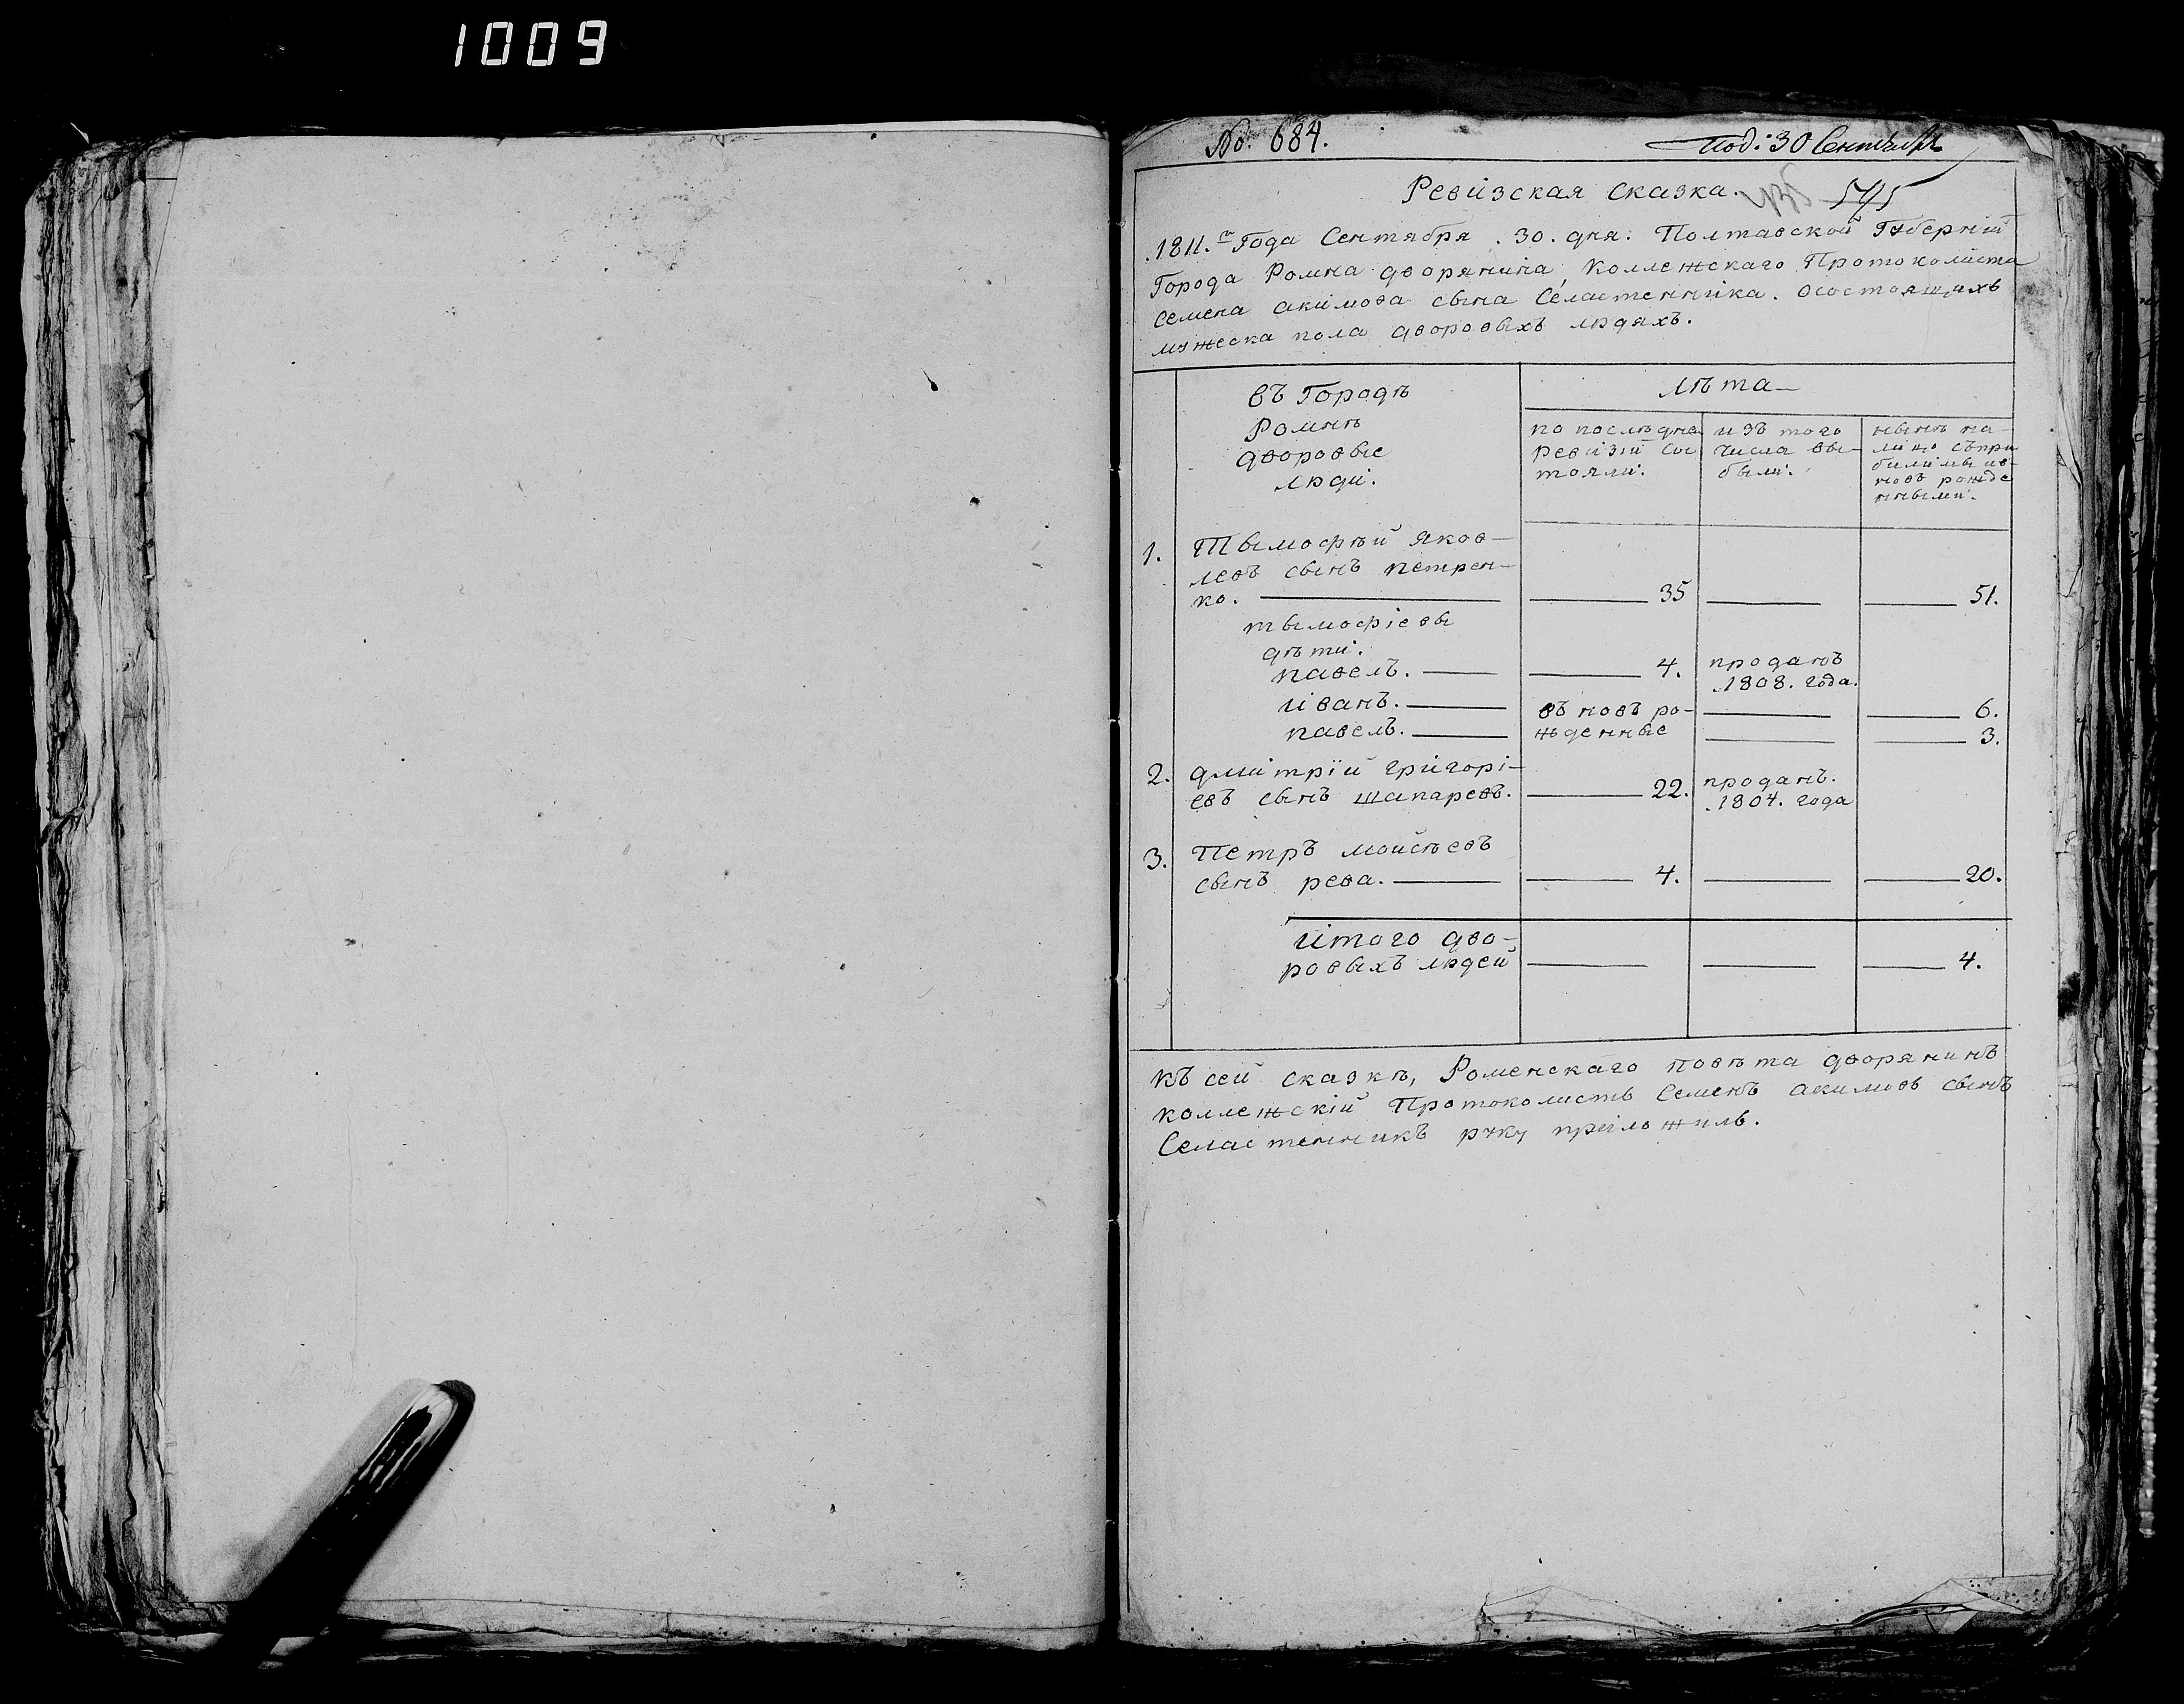 1009
No. 684.
под: 30 Сентября
Ревизская сказка.
545
1811.го Года Сентября .30. дня. Полтавской Губернїи
Города Ромна дворянина, Коллежскаго Протоколиста
Семена Акимова сына Селастенника. о состоящихъ
мужеска пола дворовыхъ людяхъ.
въ Городѣ
Ромнѣ
дворовые
люди.
лѣта
по последне
ревизїи сос
тояли.
изъ того
числа вы-
были.
нынѣ на-
лицо съпри
былими ив-
новъ рожде
нными.
1. Тымофѣй Яков-
левъ сынъ петрен-
ко. 35 51.
тымофіевы
дѣти.
павелъ. 4. проданъ
.1808. года.
иванъ. въ новъ ро- 6.
павелъ. жденные 3.
2. дмитрїй григорі-
евъ сынъ шапаревъ. 22. проданъ.
.1804. года
3. Петръ мойсѣевъ
сынъ рева. 4. 20.
итого дво-
ровыхъ людей 4.
къ сей сказкѣ, Роменскаго повѣта дворянинъ
коллежскїй Протоколистъ Семенъ Акимовъ сынъ
Селастенникъ руку приложилъ.